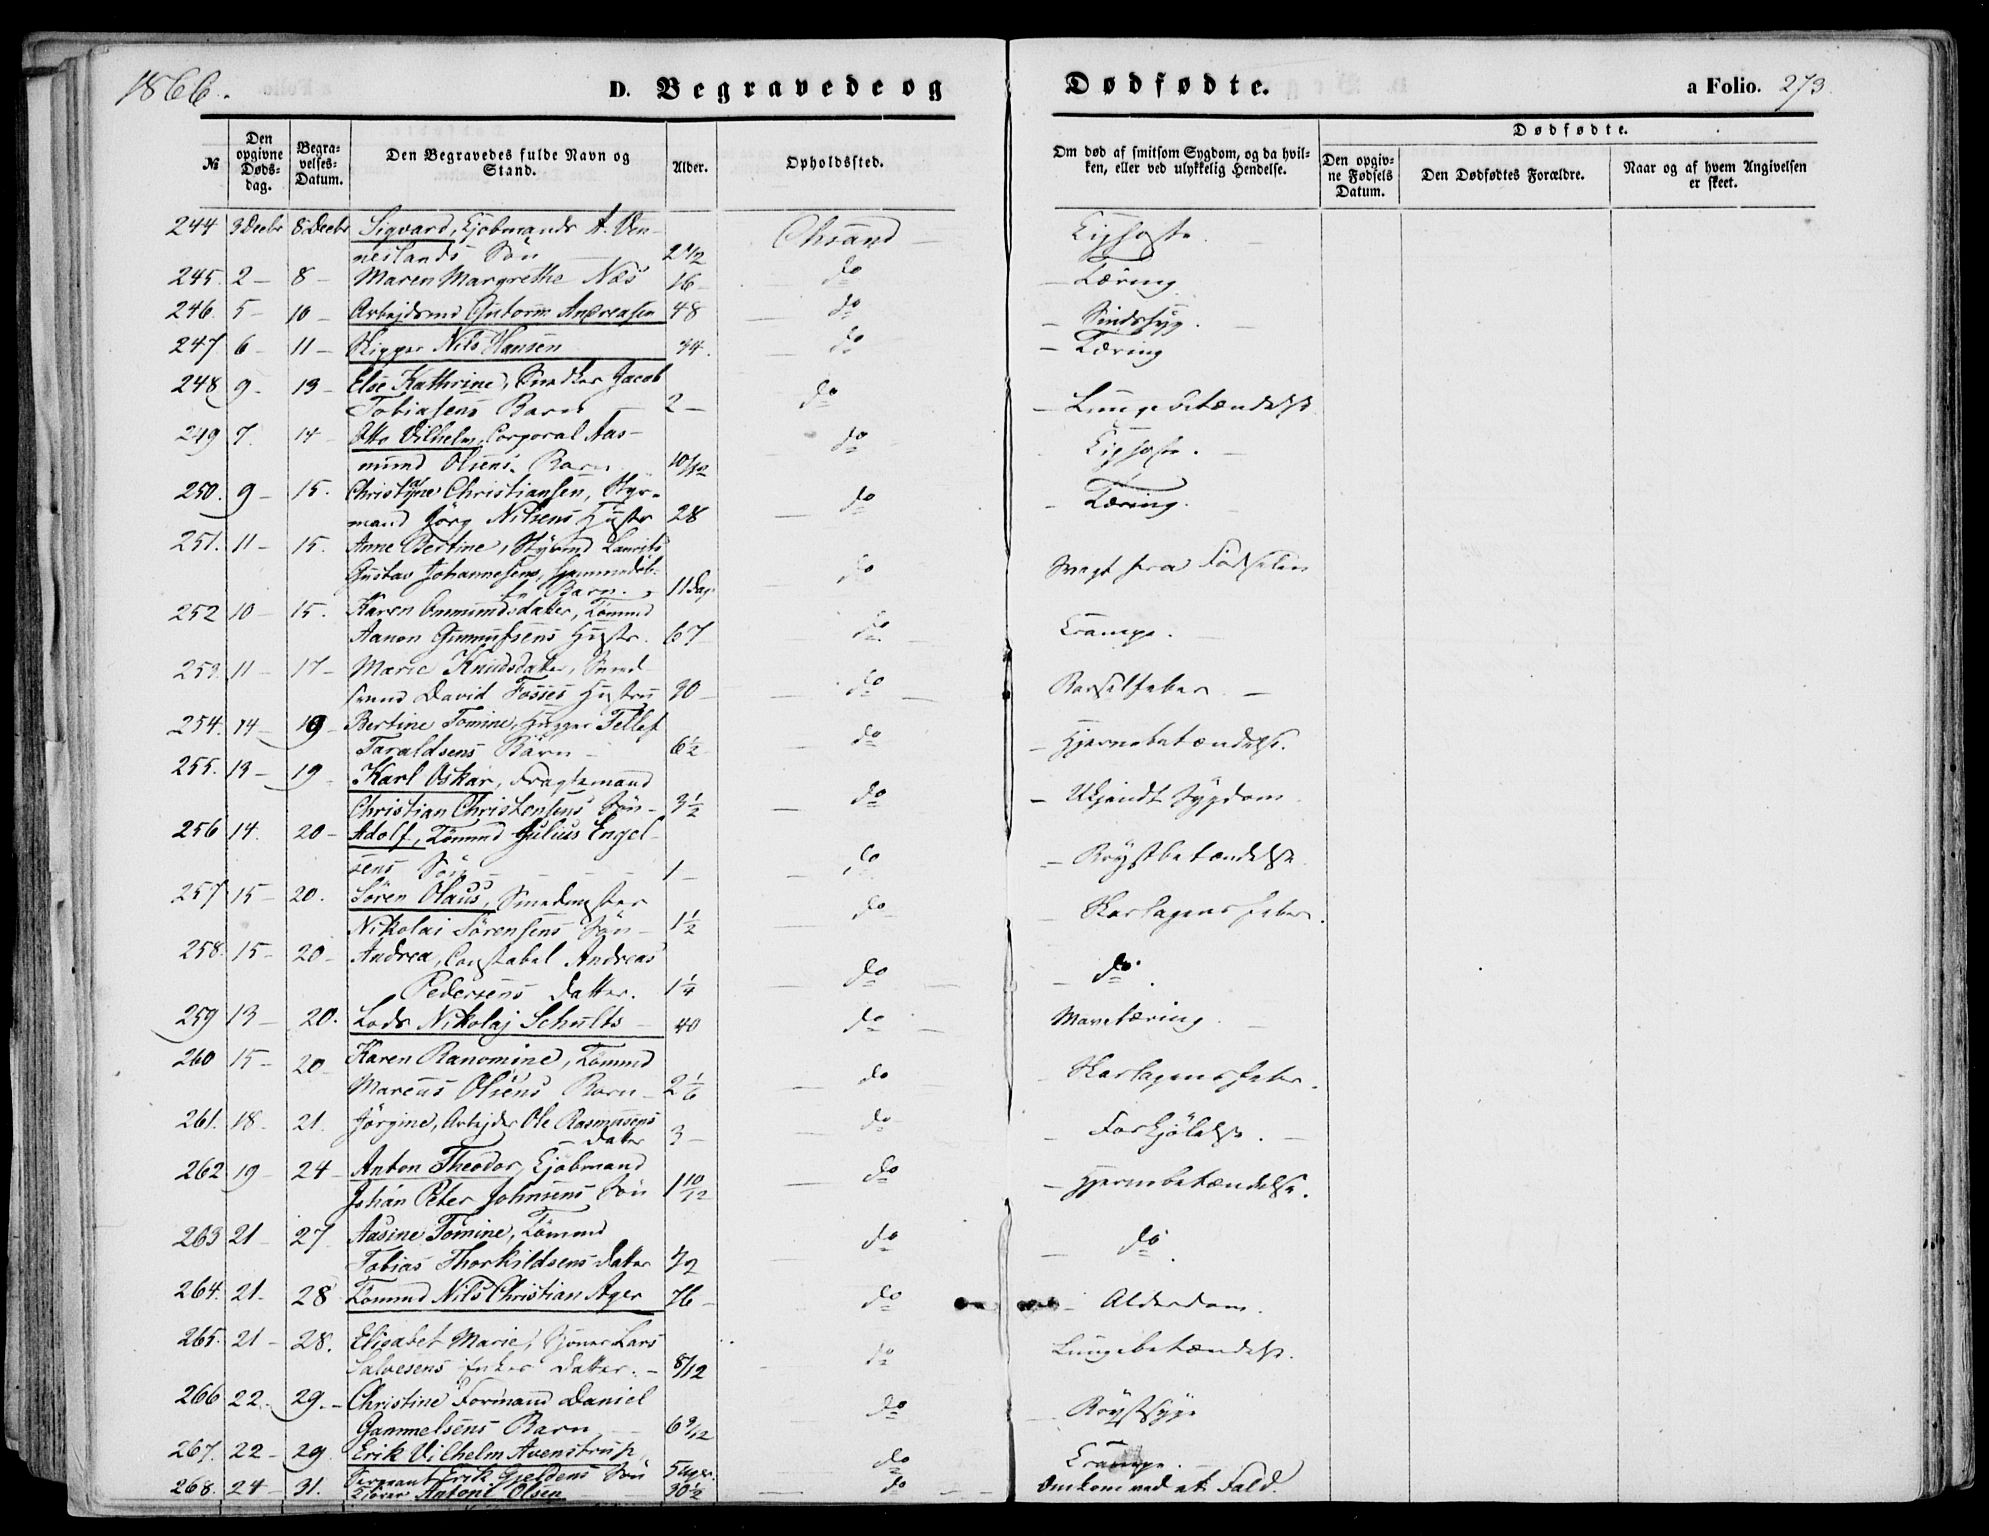 1866.
D. Begravede og Dødfødte.
a Folio. 273.
№
Den opgivne Døds-dag.
Begra-velses-Datum.
Den Begravedes fulde Navn og Stand.
Alder.
Opholdssted.
Om død af smitsom Sygdom, og da hvil-ken, eller ved ulykkelig Hendelse.
Dødfødte.
Den opgiv-ne Fødsels Datum.
Den Dødfødtes Forældre.
Naar og af hvem Angivelsen er skeet.
244 3 Decbr 8. Decbr Sigvard, Kjøbmands A. Ven-
neslands Søn 2 1/2 Chsand Kighoste
245. 2 8 Maren Margrethe Næs 16 do Tæring
246. 5 10 Arbejdsmd Gutorm Andreasen 48 do Sindssyg.
247 6 11 Skipper Nils Hansen 34. do Tæring
248 9 13 Else Kathrine, Snedker Jacob
Tobiasens Barn 2 do Lungebetændelse
249 7. 14 Otto Vilhelm, Corporal Aas-
mund Olsens Barn 10/12 do Kighoste.
250. 9 15. Christiane Christiansen, Styr-
mand Jörg Nilsens Hustr 28 do Tæring.
251. 11 15. Anne Bertine, Styrmd Laurits
Gustav Johannesens, hjemmedöb-
t Barn. 11 Dag do Svagt fra Fødselen
252 10 15. Karen Gunmundsdatter, Tömmd
Aanon Gunnufsens Hustr. 67 do Krampe.
253. 11 17 Marie Knudsdatter, Smed-
svend David Fosses Hustru 30 do Barselfeber
254. 14 19 Bertine Tomine, Skipper Tellef
Taraldsens Barn 6 1/2 do Hjernebetændelse.
255. 13 19 Karl Oskar, Fragtemand
Christian Christensens Søn 3 1/2 do Ukjendt Sygdom
256 14. 20 Adolf, Tömmd Julius Engel-
sens Søn 1 do Brystbetændelse
257 15 20. Sören Olaus, Smedmester
Nikolai Sörensens Søn 1 1/2 do Skarlagensfeber.
258. 15 20 Andrea, Constabel Andreas
Pedersens Datter. 1 1/4 do do.
259 13 20. Lods Nikolaj Schults 40 do Mavetæring
260 15 20 Karen Ranomine, Tömmd
Marcus Olsens Barn 2 1/6 do Skarlagensfeber.
261. 18. 21. Jörgine, Arbejder Ole Rasmusens
Datter 3 do Forkjölelse.
262 19 24 Anton Theodor, Kjöbmand
Johan Peter Johnsens Søn 1 10/12 do Hjernebetændelse.
263 21 27 Aasine Tomine, Tömmd
Tobias Thorkildsens Datter do do.
264. 21. 28 Tömmd Nils Christian Ager 76 do Alderdom.
265. 21 28. Elisabet Marie, Lars
Salvesens Enkes Datter. 8/12 do Lungebetændelse.
266 22. 29. Christine Formand Daniel
Gammelsens Barn 6 9/12 do Brystsyge
267. 22 29 Erik Vilhelm Avenstrup,
Sergeant Erik Gjeldens Søn 5 Uger. do Krampe.
268. 24 31. Antoni Olsen 30 1/2 do Omkom ved et Fald.